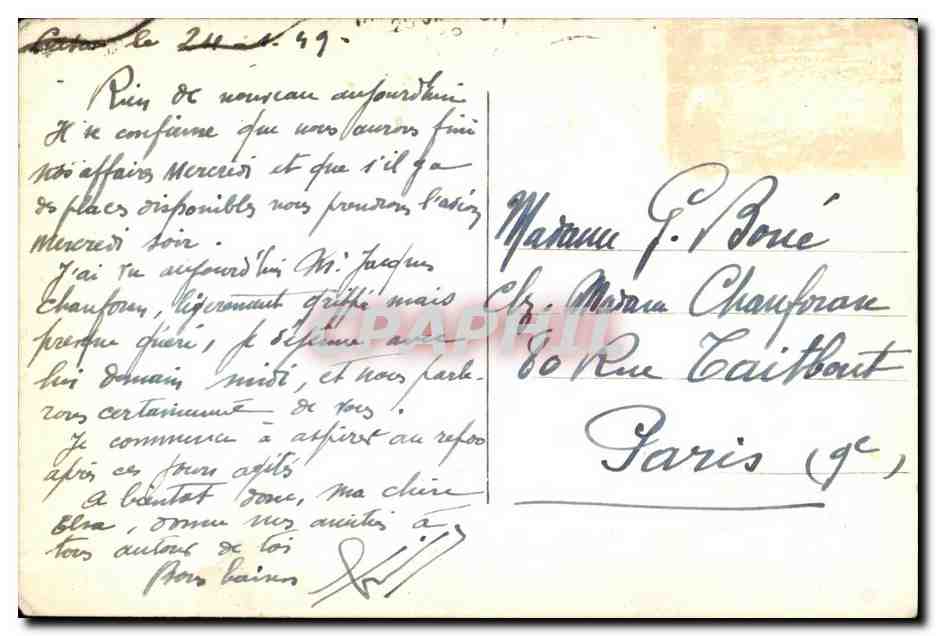 le 24 49.
Rien de nouveau aujourd'hui
Il se confirme que nous aurons fini
nos affaires Mercredi et que s'il y a
des places disponibles nous prendrons l'avion
Mercredi soir.
J'ai vu aujourd'hui Mr. Jacques
Chanforan, légèrement grippé mais
presque guéri, je déjeune avec
lui demain midi, et nous parle-
rons certainement de vous.
Je commence à aspirer au repos
après ces jours agités
A bientôt donc, ma chère
Elsa, donne mes amitiés à
tous autour de toi
Bons baisers
Madame G. Boué
Chz. Madame Chanforan
80 Rue Taitbout
Paris (9e)
CPAPHIL